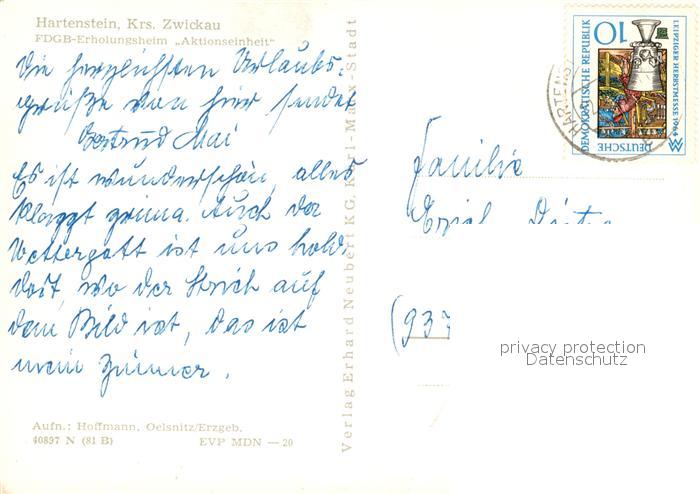 Hartenstein, Krs. Zwickau
FDGB-Erholungsheim „Aktionseinheit“
Die herzlichsten Urlaubs-
grüße von hier sendet
Gertrud Mai
Es ist wunderschön, alles
klappt prima. Auch der
Wettergott ist uns hold.
dort, wo der Strich auf
dem Bild ist, das ist
mein Zimmer.
Aufn.: Hoffmann, Oelsnitz/Erzgeb.
40897 N (81 B) EVP MDN — 20
Verlag Erhard Neubert KG, Karl-Marx-Stadt
10
DEUTSCHE
DEMOKRATISCHE REPUBLIK
LEIPZIGER HERBSTMESSE 1964
HARTENST
Familie
Erich
(937
privacy protection
Datenschutz